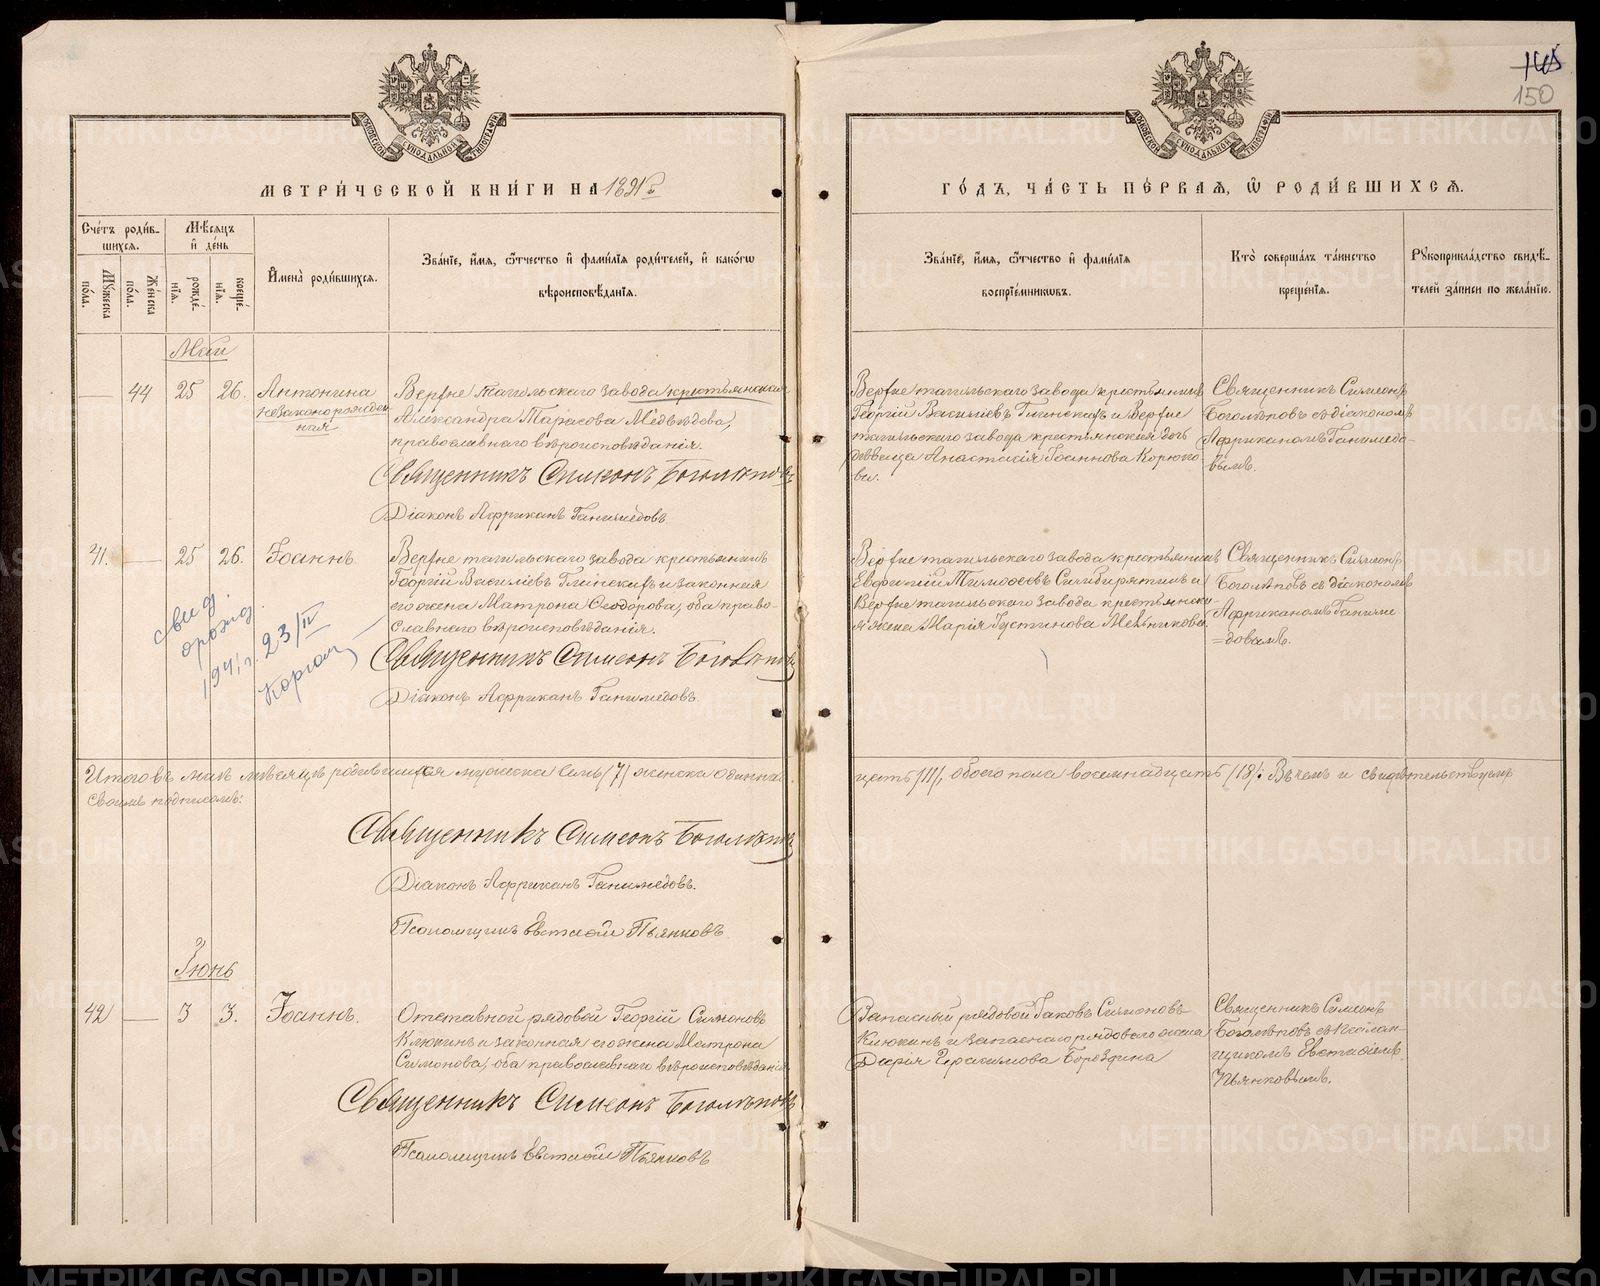 145
150
МЕТРИ́ЧЕСКОЙ КНИ́ГИ НА 1891 г.
ГО́ДЪ, ЧА́СТЬ ПЕ́РВАЯ, Ѿ РОДИ́ВШИХСѦ.
Сче́тъ роди́в-
шихся.
Мѣ́сяцъ
и҆ де́нь
И҆мена̀ роди́вшихся.
Зва́нїе, и҆́мя, ѻ҆́тчество и҆ фами́лїя роди́телей, и҆ како́гѡ
вѣроисповѣ́данїя.
Зва́нїе, и҆́мя, ѻ҆́тчество и҆ фами́лїя
воспрїе́мниковъ.
Кто̀ соверша́лъ та́инство
креще́нїя.
Рꙋкоприкла́дство свидѣ́-
телей за́писи по жела́нїю.
Мꙋ́жеска
по́ла.
Же́нска
по́ла.
рожде́-
нїя.
креще́-
нїя.
Май
44 25 26. Антонина
незаконорожден-
ная
Верхне тагильскаго завода крестьянская
Александра Тарасова Медвѣдова,
православнаго вѣроисповѣданія.
Священникъ Симеонъ Боголѣповъ
Діаконъ Африканъ Ганимедовъ
Верхне тагильскаго завода крестьянинъ
Георгій Василіевъ Глинскихъ и Верхне
тагильскаго завода крестьянская дочь
дѣвица Анастасія Іоаннова Корюко-
ва.
Священникъ Симеонъ
Боголѣповъ съ діакономъ
Африканомъ Ганимедо-
вымъ.
41. 25 26. Іоаннъ.
Верхне тагильскаго завода крестьянинъ
Георгій Василіевъ Глинскихъ и законная
его жена Матрона Ѳеодорова, оба право-
славнаго вѣроисповѣданія.
Священникъ Симеонъ Боголѣповъ
Діаконъ Африканъ Ганимедовъ.
Верхне тагильскаго завода крестьянинъ
Тимоѳеевъ и
Верхне тагильскаго завода крестьянска-
я жена Марія Іустинова Мельникова.
Священникъ Симеонъ
Боголѣповъ съ діакономъ
Африканомъ Ганиме-
=довымъ.
свид.
о рожд.
1941 г. 23/IV
Итого въ маѣ мѣсяцѣ родившихся мужеска семь /7/ женска одинна-
цать /11/, обоего пола восемнадцать /18/: Въ чемъ и свидѣтельствуемъ
своимъ подписомъ:
Священникъ Симеонъ Боголѣповъ
Діаконъ Африканъ Ганимедовъ.
Псаломщикъ Евстаѳій Пьянковъ
Іюнь
42 3 3. Іоаннъ.
Отставной рядовой Георгій Симоновъ
Клюкинъ и законная его жена Матрона
Симонова, оба православнаго вѣроисповѣданія
Священникъ Симеонъ Боголѣповъ
Псаломщикъ Евстаѳій Пьянковъ
Запасный рядовой Іаковъ Симоновъ
Клюкинъ и запаснаго рядового жена
Дарія Герасимова Бороздина
Священникъ Симеонъ
Боголѣповъ съ псалом-
щикомъ Евстаѳіемъ
Пьянковымъ.
METRIKI.GASO-URAL.RU